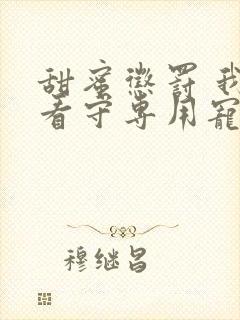 甜蜜懲罰我
看守專用寵
穆继昌